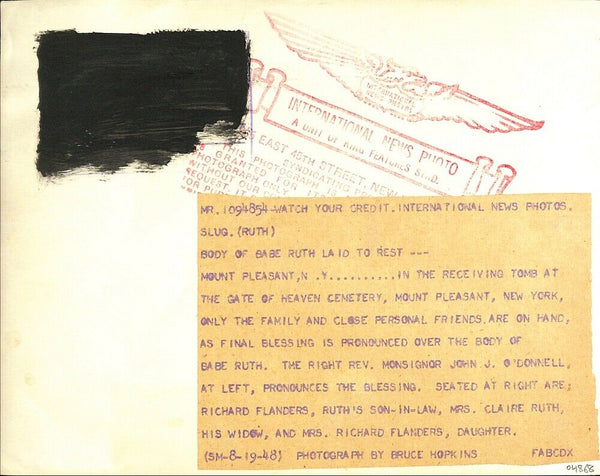 INTERNATIONAL
NEWS PHOTO
INTERNATIONAL NEWS PHOTO
A UNIT OF KING FEATURES SYND.
EAST 45TH STREET, NEW
THIS SYNDICATING
PHOTOGRAPH IS
GRANTED FOR
PHOTOGRAPH ONLY
WITHOUT OUR
REQUEST. IT
FOR
MR. 1094854 WATCH YOUR CREDIT.INTERNATIONAL NEWS PHOTOS.
SLUG.(RUTH)
BODY OF BABE RUTH LAID TO REST ---
MOUNT PLEASANT,N .Y..........IN THE RECEIVING TOMB AT
THE GATE OF HEAVEN CEMETERY, MOUNT PLEASANT, NEW YORK,
ONLY THE FAMILY AND CLOSE PERSONAL FRIENDS.ARE ON HAND,
AS FINAL BLESSING IS PRONOUNCED OVER THE BODY OF
BABE RUTH. THE RIGHT REV. MONSIGNOR JOHN J. O'DONNELL,
AT LEFT, PRONOUNCES THE BLESSING. SEATED AT RIGHT ARE;
RICHARD FLANDERS, RUTH'S SON-IN-LAW, MRS. CLAIRE RUTH,
HIS WIDOW, AND MRS. RICHARD FLANDERS, DAUGHTER.
(SM-8-19-48) PHOTOGRAPH BY BRUCE HOPKINS FABCDX
04868